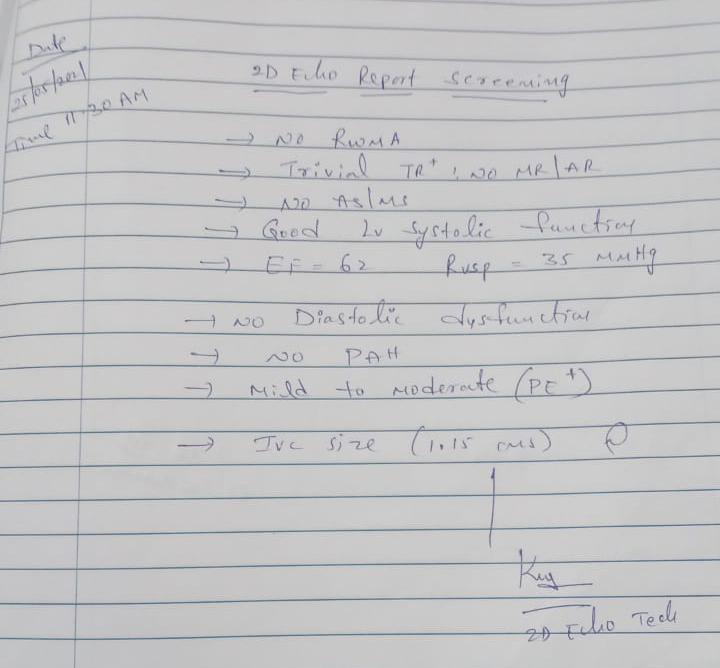 Date
25/05/2021
Time 11-30 AM
2D Echo Report Screening
→ NO RWMA
→ Trivial TR+ ; NO MR/AR
→ NO AS/MS
→ Good LV Systolic function
→ EF = 62 RVSP = 35 MMHg
→ NO Diastolic dysfunction
→ NO PAH
→ Mild to Moderate (PE+)
→ IVC size (1.15 cms)
2D Echo Tech